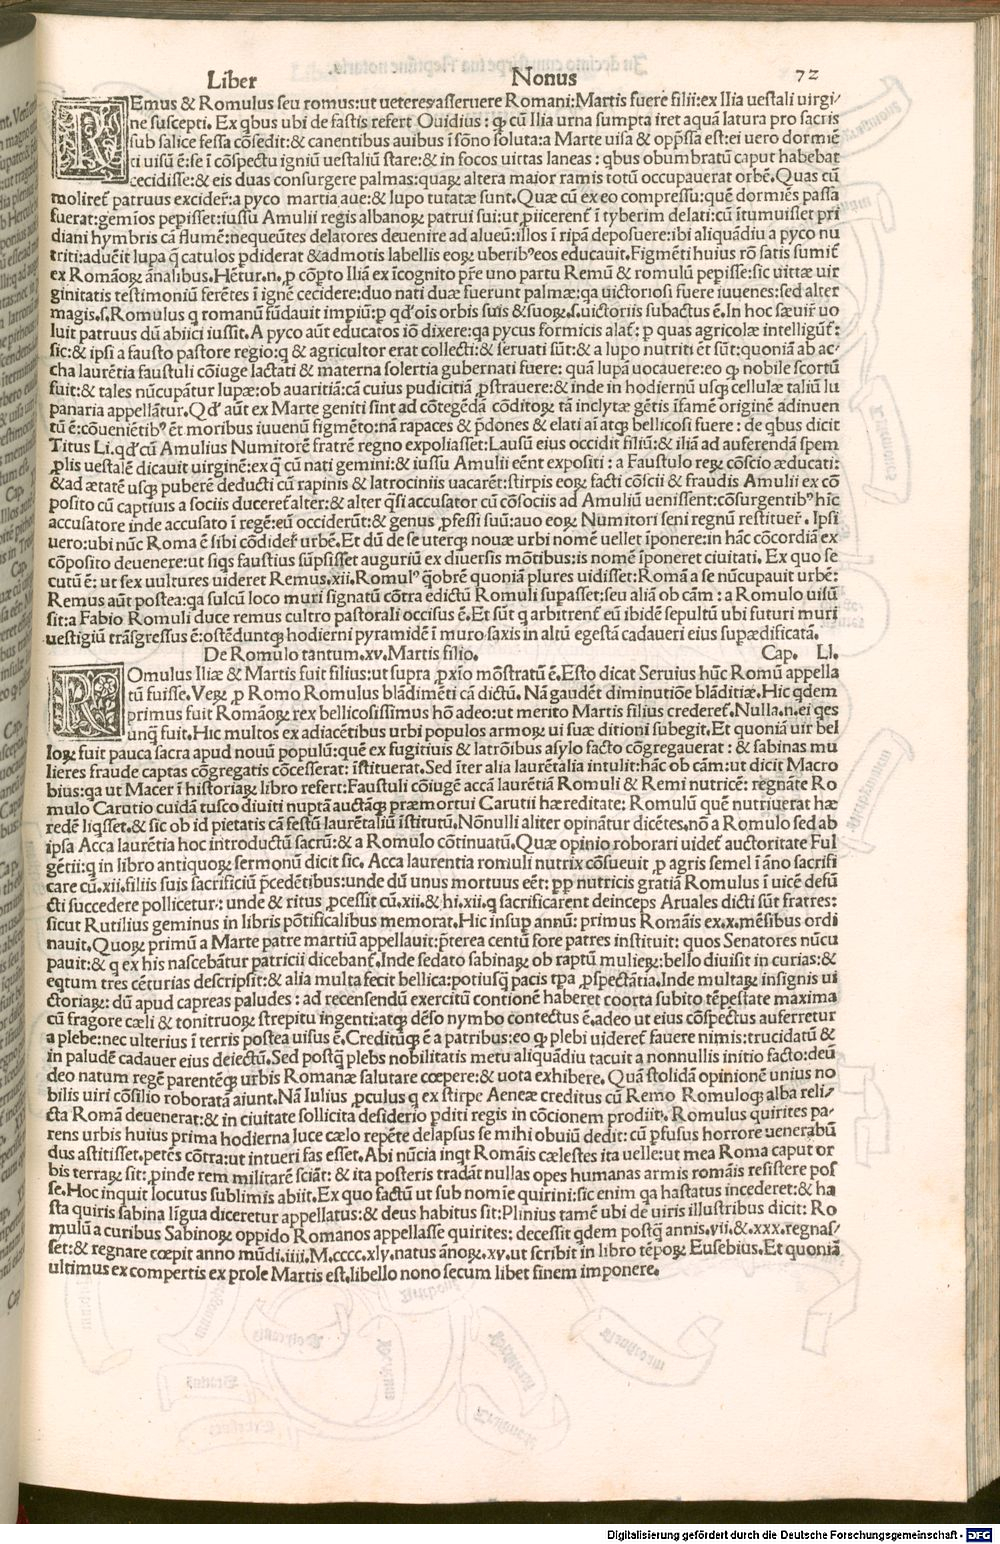 Liber Nonus 72
REmus & Romulus seu romus:ut ueteres asseruere Romani:Martis fuere filii:ex Ilia uestali uirgi/
ne suscepti. Ex qbus ubi de fastis refert Ouidius: ꝙ cū Ilia urna sumpta iret aquā latura pro sacris
sub salice fessa cōsedit:& canentibus auibus ī sōno soluta:a Marte uisa & opp̄ssa est:ei uero dormiē
ti uisū ē:se ī cōspectu igniū uestaliū stare:& in focos uittas laneas : qbus obumbratū caput habebat
cecidisse:& eis duas consurgere palmas:quaꝝ altera maior ramis totū occupauerat orbē. Quas cū
moliret̄ patruus excider̄:a pyco martia aue:& lupo tutatæ sunt. Quæ cū ex eo compressu:quē dormiēs passa
fuerat:gemīos pepisset:iussu Amulii regis albanoꝝ patrui sui:ut ꝓiicerent̄ ī tyberim delati:cū ītumuisset pri
diani hymbris cā flumē:nequeūtes delatores deuenire ad alueū:illos ī ripā deposuere:ibi aliquādiu a pyco nu
triti:aduēit lupa q̄ catulos ꝑdiderat & admotis labellis eoꝝ uberibꝰ eos educauit. Figmēti huius rō satis sumit̄
ex Romāoꝝ ānalibus. Hētur.n.ꝑ cōpto Iliā ex īcognito pr̄e uno partu Remū & romulū pepisse:sic uittæ uir
ginitatis testimoniū ferētes ī ignē cecidere:duo nati duæ fuerunt palmæ:qa uictoriosi fuere iuuenes:sed alter
magis.s.Romulus q romanū fūdauit impiū:ꝑ qd' oīs orbis suis & suoꝝ.s.uictoriis subactus ē. In hoc sæuir̄ uo
luit patruus dū abiici iussit. A pyco aūt educatos iō dixere:qa pycus formicis alat̄: ꝑ quas agricolæ intelligūt̄:
sic:& ipsi a fausto pastore regio:q & agricultor erat collecti:& seruati sūt:& a lupo nutriti ēt sūt:quoniā ab ac/
cha laurētia faustuli cōiuge lactati & materna solertia gubernati fuere: quā lupā uocauere:eo ꝙ nobile scortū
fuit:& tales nūcupātur lupæ:ob auaritiā:cā cuius pudicitiā ꝓstrauere:& inde in hodiernū usqꝫ cellulæ taliū lu
panaria appellātur. Qd' aūt ex Marte geniti sint ad cōtegēdā cōditoꝝ tā inclytæ gētis īfamē originē adinuen
tū ē:cōueniētibꝰ ēt moribus iuuenū figmēto:nā rapaces & p̄dones & elati aī atqꝫ bellicosi fuere : de qbus dicit
Titus Li.qd' cū Amulius Numitorē fratrē regno expoliasset:Lausū eius occidit filiū:& iliā ad auferendā spem
ꝓlis uestalē dicauit uirginē:ex q̄ cū nati gemini:& iussu Amulii eēnt expositi : a Faustulo reꝝ cōscio æducati:
& ad ætatē usqꝫ puberē deducti cū rapinis & latrociniis uacarēt:stirpis eoꝝ facti cōscii & fraudis Amulii ex cō
posito cū captiuis a sociis duceret̄ alter:& alter q̄si accusator cū cōsociis ad Amuliū uenissent:cōsurgentibꝰ hīc
accusatore inde accusato ī regē:eū occiderūt:& genus ꝓfessi suū:auo eoꝝ Numitori seni regnū restituer̄ . Ipsi
uero:ubi nūc Roma ē sibi cōdider̄ urbē. Et dū de se uterqꝫ nouæ urbi nomē uellet īponere:in hāc cōcordiā ex
cōposito deuenere:ut siqs faustius sūpsisset auguriū ex diuersis mōtibus:is nomē īponeret ciuitati. Ex quo se
cutū ē: ut sex uultures uideret Remus.xii.Romulꝰ q̄obrē quoniā plures uidisset:Romā a se nūcupauit urbē:
Remus aūt postea:qa sulcū loco muri signatū cōtra edictū Romuli supasset:seu aliā ob cām : a Romulo uisū
sit:a Fabio Romuli duce remus cultro pastorali occisus ē. Et sūt q arbitrent̄ eū ibidē sepultū ubi futuri muri
uestigiū trāsgressus ē:ostēduntqꝫ hodierni pyramidē ī muro saxis in altū egestā cadaueri eius supædificatā.
De Romulo tantum.xv.Martis filio. Cap. LI.
ROmulus Iliæ & Martis fuit filius:ut supra ꝓxīo mōstratū ē. Esto dicat Seruius hūc Romū appella
tū fuisse. Veꝝ ꝓ Romo Romulus blādimēti cā dictū. Nā gaudēt diminutiōe blāditiæ. Hic qdem
primus fuit Romāoꝝ rex bellicosissimus hō adeo:ut merito Martis filius crederet̄. Nulla.n.ei qes
unq̄ fuit. Hic multos ex adiacētibus urbi populos armoꝝ ui suæ ditioni subegit. Et quoniā uir bel
loꝝ fuit pauca sacra apud nouū populū:quē ex fugitiuis & latrōibus asylo facto cōgregauerat : & sabinas mu
lieres fraude captas cōgregatis cōcesserat: īstituerat. Sed īter alia laurētalia intulit:hāc ob cām:ut dicit Macro
bius:qa ut Macer ī historiaꝝ libro refert:Faustuli cōiugē accā laurētiā Romuli & Remi nutricē: regnāte Ro
mulo Carutio cuidā tusco diuiti nuptā auctāqꝫ præmortui Carutii hæreditate: Romulū quē nutriuerat hæ
redē liqsset.& sic ob id pietatis cā festū laurētaliū īstitutū. Nōnulli aliter opinātur dicētes.nō a Romulo sed ab
ipsa Acca laurētia hoc introductū sacrū:& a Romulo cōtinuatū. Quæ opinio roborari uidet̄ auctoritate Ful
gētii:q in libro antiquoꝝ sermonū dicit sic. Acca laurentia romuli nutrix cōsueuit ꝓ agris semel ī āno sacrifi
care cū.xii.filiis suis sacrificiū p̄cedētibus:unde dū unus mortuus eēt: pp̄ nutricis gratiā Romulus ī uicē defū
cti succedere pollicetur: unde & ritus ꝓcessit cū.xii.& hi.xii.q sacrificarent deinceps Aruales dicti sūt fratres:
sicut Rutilius geminus in libris pōtificalibus memorat. Hic insup annū: primus Romāis ex.x.mēsibus ordi
nauit. Quoꝝ primū a Marte patre martiū appellauit:p̄terea centū fore patres instituit: quos Senatores nūcu
pauit:& q ex his nascebātur patricii dicebant̄. Inde sedato sabinaꝝ ob raptū mulieꝝ:bello diuisit in curias:&
eqtum tres cēturias descripsit:& alia multa fecit bellica:potiusq̄ pacis tp̄a ꝓspectātia. Inde multaꝝ insignis ui
ctoriaꝝ: dū apud capreas paludes : ad recensendū exercitū contionē haberet coorta subito tēpestate maxima
cū fragore cæli & tonitruoꝝ strepitu ingenti:atqꝫ dēso nymbo contectus ē.adeo ut eius cōspectus auferretur
a plebe:nec ulterius ī terris postea uisus ē. Creditūqꝫ ē a patribus:eo ꝙ plebi uideret̄ fauere nimis:trucidatū &
in paludē cadauer eius deiectū. Sed postq̄ plebs nobilitatis metu aliquādiu tacuit a nonnullis initio facto:deū
deo natum regē parentēqꝫ urbis Romanæ salutare cœpere:& uota exhibere. Quā stolidā opinionē unius no
bilis uiri cōsilio roboratā aiunt. Nā Iulius ꝓculus q ex stirpe Aeneæ creditus cū Remo Romuloqꝫ alba reli/
cta Romā deuenerat:& in ciuitate sollicita desiderio ꝑditi regis in cōcionem prodiit. Romulus quirites pa/
rens urbis huius prima hodierna luce cælo repēte delapsus se mihi obuiū dedit: cū ꝑfusus horrore uenerabū
dus astitisset.petēs cōtra:ut intueri fas esset. Abi nūcia inqt Romāis cælestes ita uelle:ut mea Roma caput or
bis terraꝝ sit: ꝓinde rem militarē sciāt: & ita posteris tradāt nullas opes humanas armis romāis resistere pos
se. Hoc inquit locutus sublimis abiit. Ex quo factū ut sub nomīe quirini:sic enim qa hastatus incederet:& ha
sta quiris sabina līgua diceretur appellatus:& deus habitus sit:Plinius tamē ubi de uiris illustribus dicit: Ro
mulū a curibus Sabinoꝝ oppido Romanos appellasse quirites: decessit qdem postq̄ annis.vii.&.xxx.regnas/
set:& regnare cœpit anno mūdi.iiii.M.cccc.xlv.natus ānoꝝ.xv.ut scribit in libro tēpoꝝ Eusebius. Et quoniā
ultimus ex compertis ex prole Martis est.libello nono secum libet finem imponere.
Digitalisierung gefördert durch die Deutsche Forschungsgemeinschaft - DFG